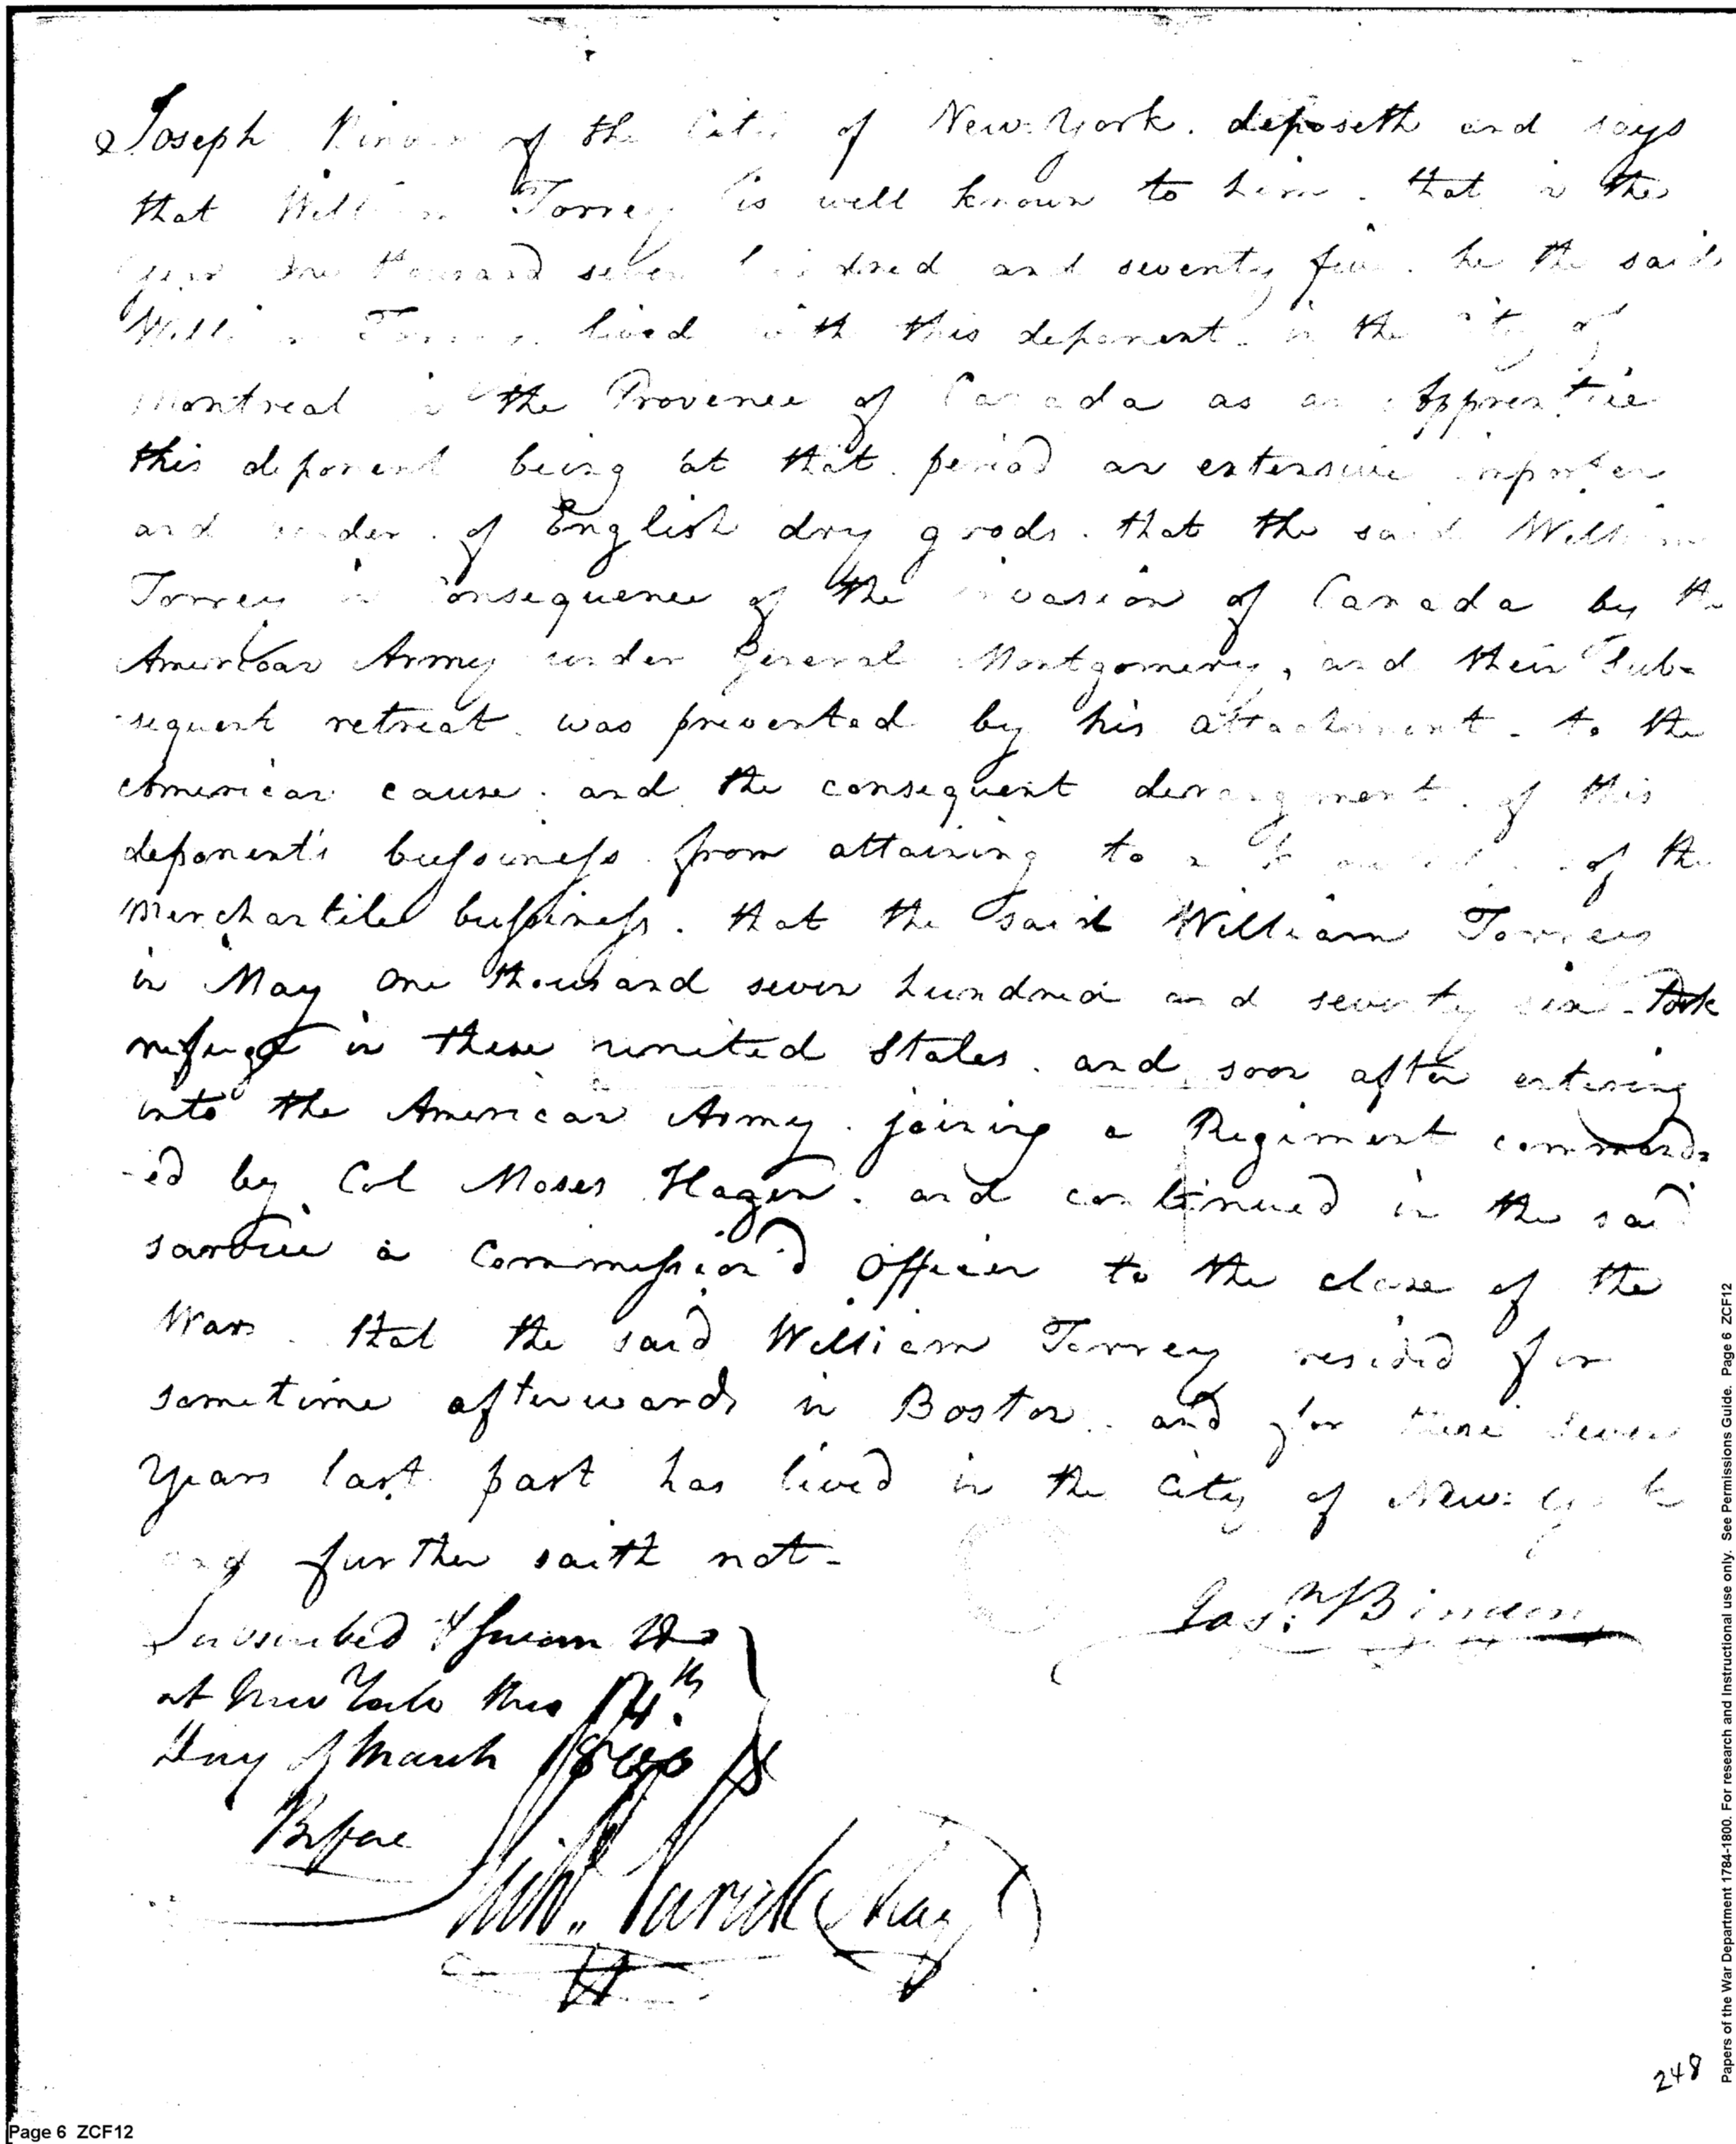 Joseph of the City of New-York. deposeth and says
that William Torrey is well known to him. that in the
year One thousand seven hundred and seventy five. he the said
William Torrey. lived with this deponent. in the City of
Montreal in the Province of Canada as an Apprentice
this deponent being at that period an extensive importer
and vender. of English dry goods. that the said William
Torrey in Consequence of the invasion of Canada by the
American Army under General Montgomery, and their Sub-
-sequent retreat. was prevented by his attachment. to the
American cause. and the consequent derangment. of this
deponent's bussiness. from attaining to a of the
Merchantile bussiness. that the said William Torrey
in May One thousand seven hundred and seventy six. took
refuge in these united States. and soon after entering
into the American Army. joining a Regiment command-
-ed by Col Moses Hazen. and continued in the said
sarvice a Commission'd Officer to the close of the
War. that the said William Torrey resided for
sometime afterwards in Boston. and for these seven
Years last past has lived in the City of New-York
and further saith not-
Subscribed & Sworn to
at New York this 14th
Day of March 1800
Before
Jos: Bindon
Richd. Varick Mayr
248
Page 6 ZCF12
Papers of the War Department 1784-1800. For research and Instructional use only. See Permissions Guide. Page 6 ZCF12